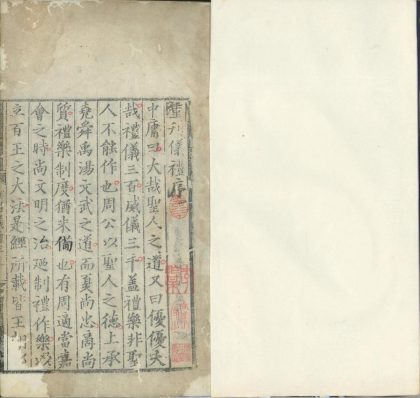 重刊儀禮序
中庸曰大哉聖人之道又曰優優大
哉禮儀三百威儀三千蓋禮樂非聖
人不能作也周公以聖人之德上承
堯舜禹湯文武之道而夏尚忠商尚
質禮樂制度猶未備也有周適當嘉
會之時尚文明之治廼制禮作樂以
立百王之大法是經所載皆王